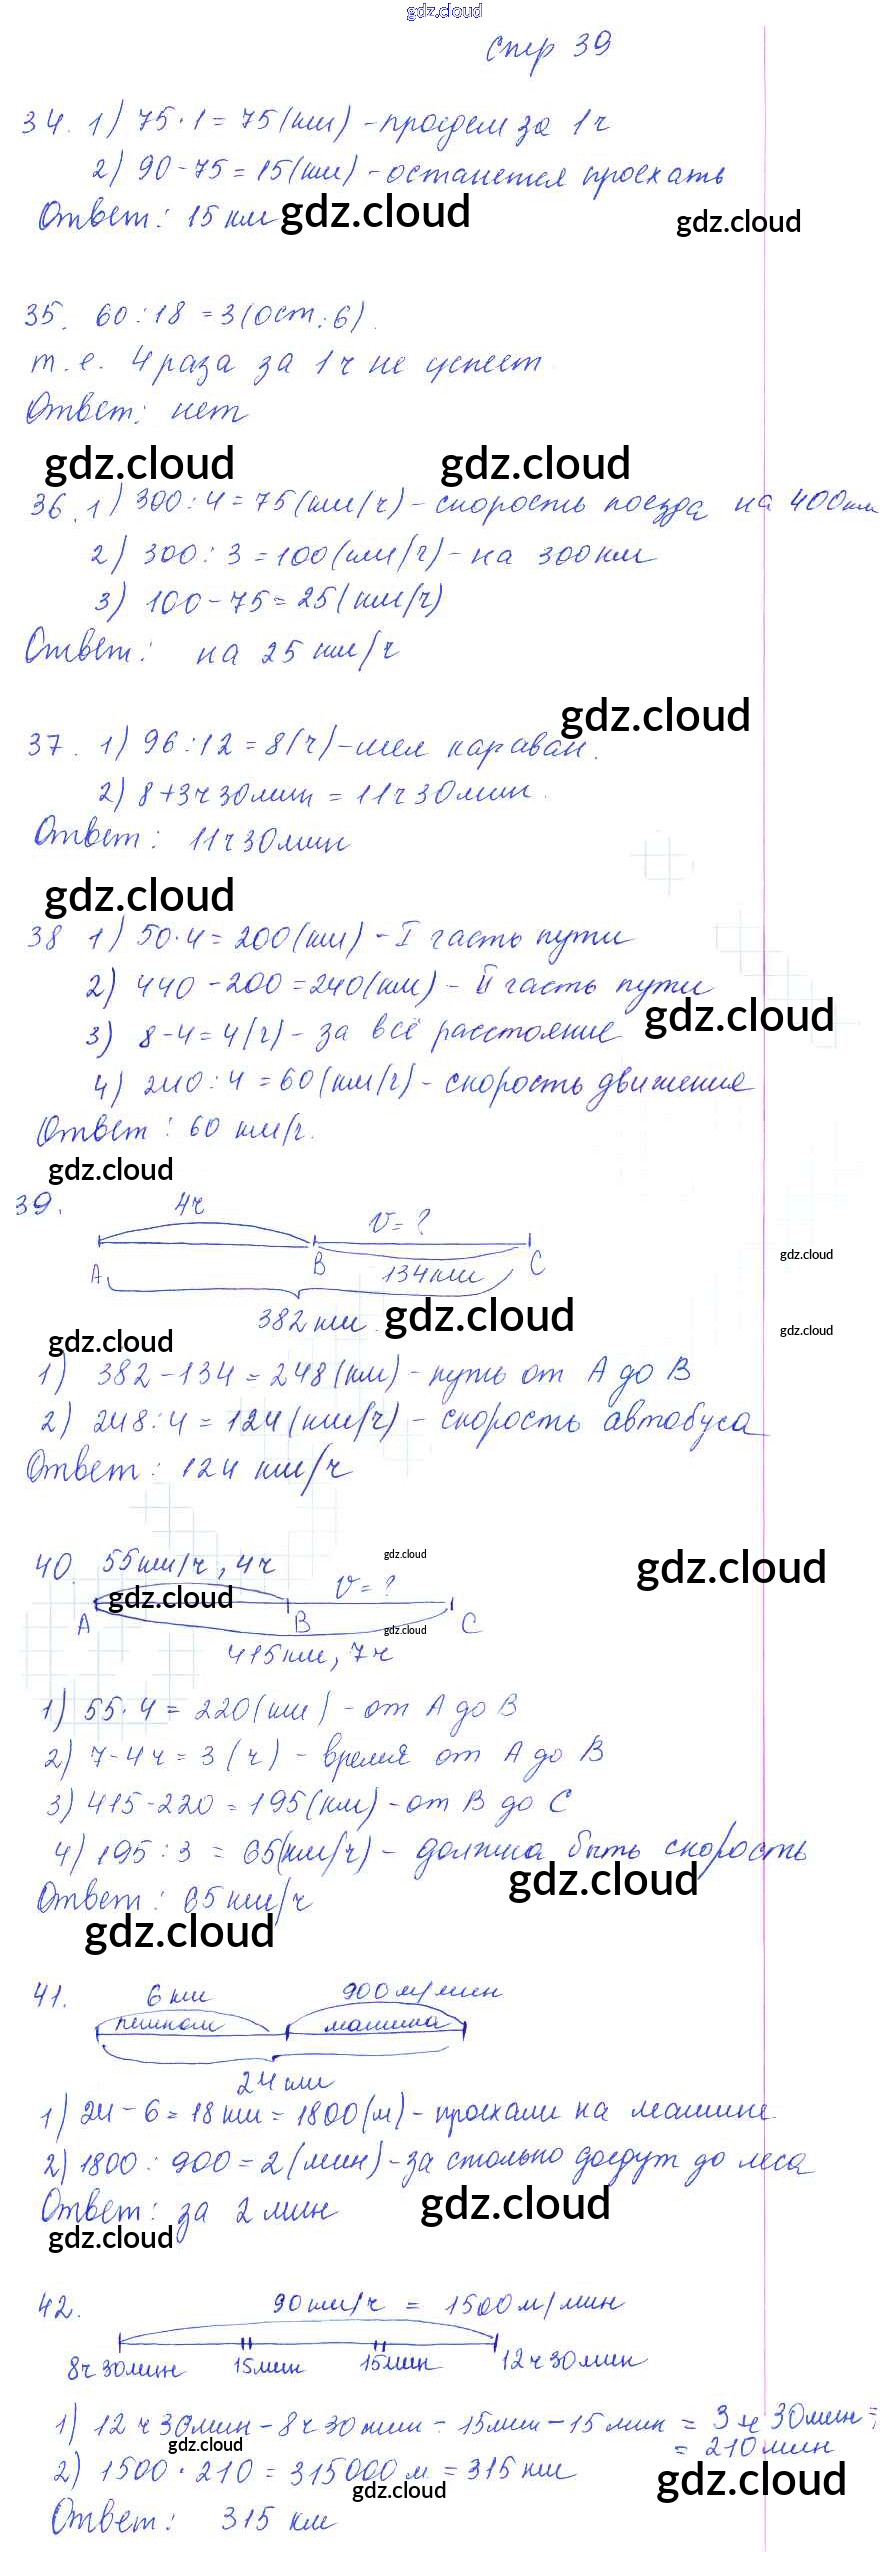 gdz.cloud
стр 39
34. 1) 75·1=75(км)-проедем за 1ч
2) 90-75=15(км)-останется проехать
Ответ: 15 км
gdz.cloud gdz.cloud
35. 60:18=3(ост.6).
т.е. 4 раза за 1ч не успеет.
Ответ: нет
gdz.cloud gdz.cloud
36.1) 300:4=75(км/ч)-скорость поезда на 400км
2) 300:3=100(км/ч)-на 300км
3) 100-75=25(км/ч)
Ответ: на 25 км/ч
gdz.cloud
37. 1) 96:12=8(ч)-шел караван.
2) 8+3ч30мин=11ч30мин.
Ответ: 11ч30мин
gdz.cloud
38 1) 50·4=200(км)-I часть пути
2) 440-200=240(км)-II часть пути
gdz.cloud
3) 8-4=4(ч)-за всё расстояние
4) 240:4=60(км/ч)-скорость движения
Ответ: 60 км/ч.
gdz.cloud
39. 4ч v=?
A B C gdz.cloud
134км
382км gdz.cloud gdz.cloud
gdz.cloud
1) 382-134=248(км)-путь от A до B
2) 248:4=124(км/ч)-скорость автобуса
Ответ: 124 км/ч
40. 55км/ч, 4ч gdz.cloud gdz.cloud
gdz.cloud v=?
A B C gdz.cloud
415км, 7ч
1) 55·4=220(км)-от A до B
2) 7-4ч=3(ч)-время от A до B
3) 415-220=195(км)-от B до C
4) 195:3=65(км/ч)-должна быть скорость
gdz.cloud
Ответ: 65км/ч
gdz.cloud
41. 6км 900м/мин
пешком машина
24км
1) 24-6=18км=1800(м)-проехали на машине.
2) 1800:900=2(мин)-за столько доедут до леса
Ответ: за 2 мин gdz.cloud
gdz.cloud
42. 90км/ч = 1500м/мин
8ч30мин 15мин 15мин 12ч30мин
1) 12ч30мин-8ч30мин-15мин-15мин=3ч30мин=
=210мин
gdz.cloud
2) 1500·210=315000м=315км
gdz.cloud gdz.cloud
Ответ: 315 км